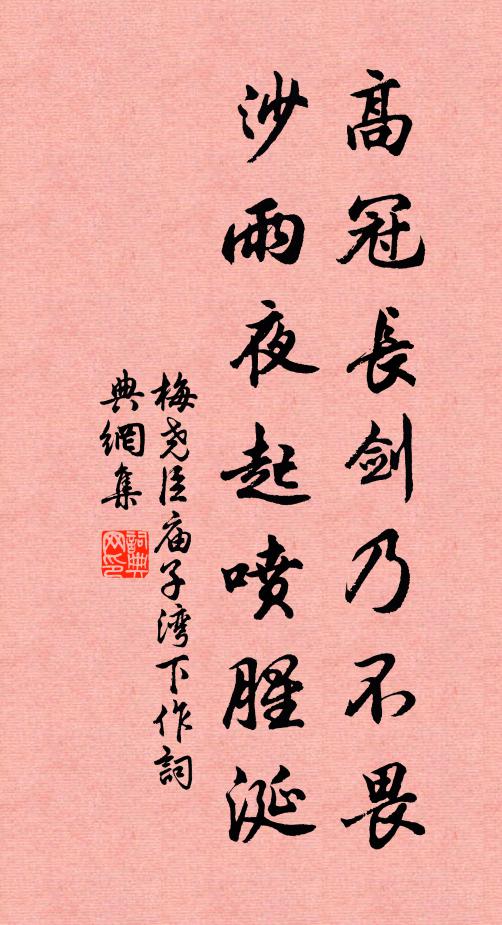 高冠長剑乃不畏
沙雨夜起喷腥涎
梅尧臣庙子湾下作詞
典網集
詞典网印